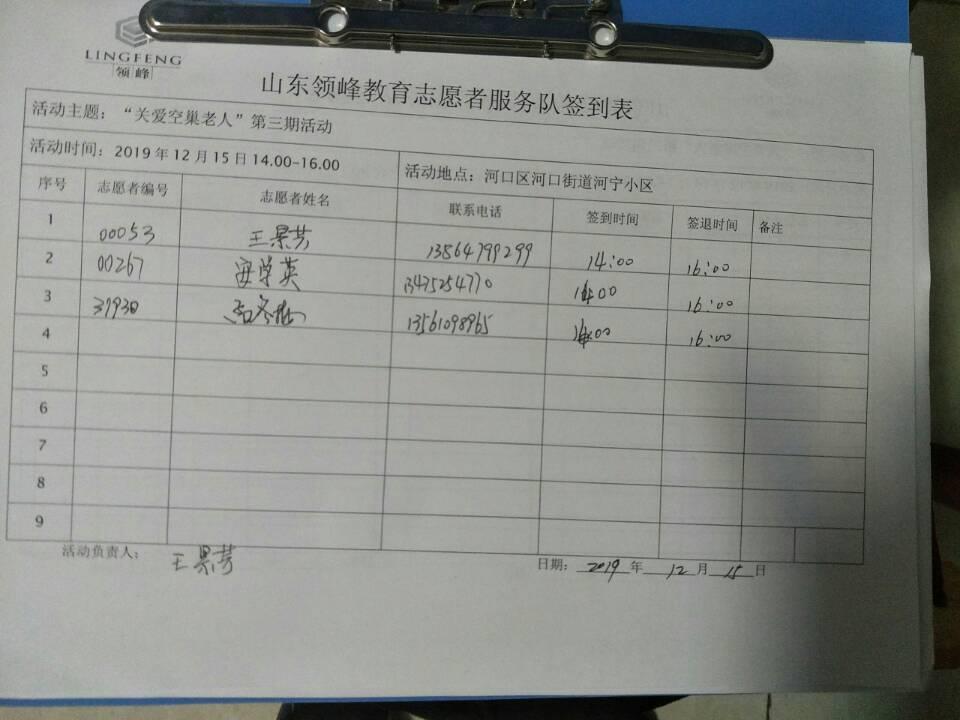 LINGFENG
领峰
山东领峰教育志愿者服务队签到表
活动主题：“关爱空巢老人”第三期活动
活动时间：2019年12月15日14.00-16.00 活动地点：河口区河口街道河宁小区
序号 志愿者编号 志愿者姓名 联系电话 签到时间 签退时间 备注
1 00053 王景芳 13564799299 14:00 16:00
2 00267 安学英 13475254770 14:00 16:00
3 37930 13561098965 14:00 16:00
4
5
6
7
8
9
活动负责人： 王景芳 日期： 2019 年 12 月 15 日